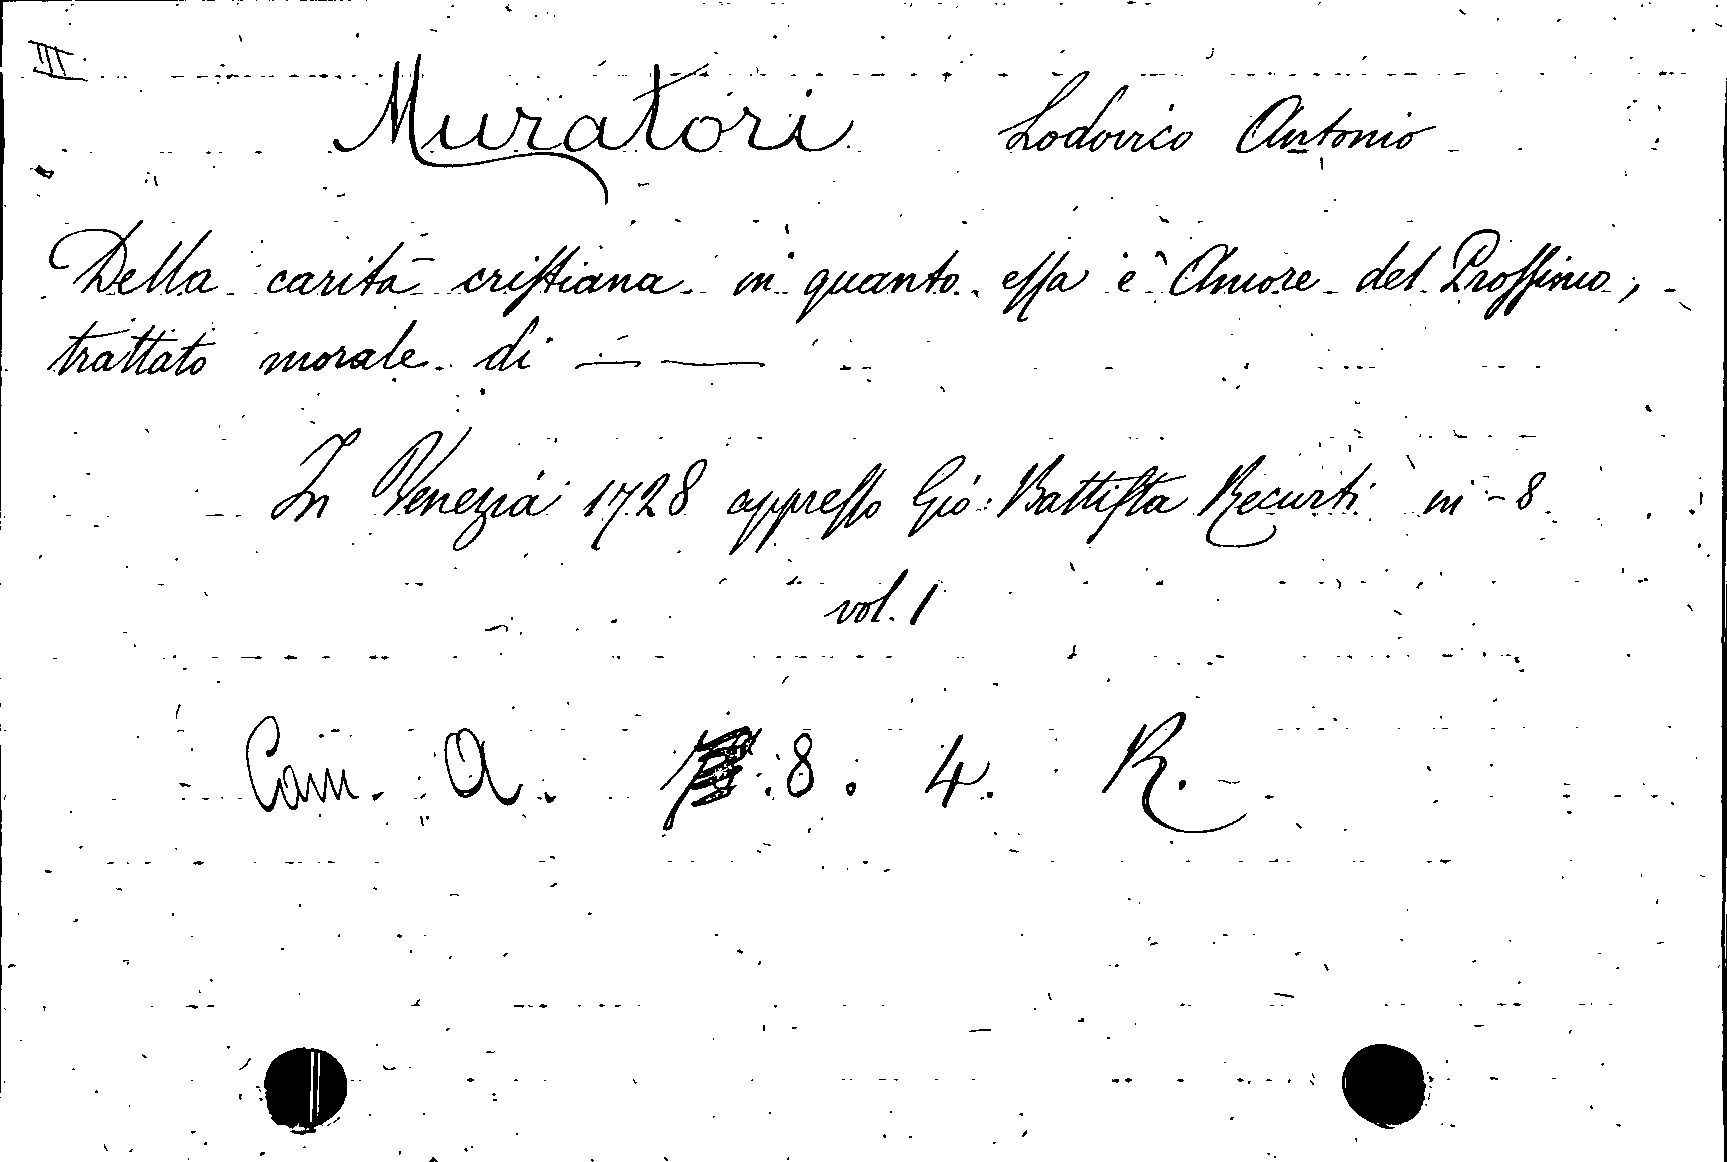 III
Muratori Lodovico Antonio
Della carità cristiana in quanto essa è Amore del Prossimo;
trattato morale di — —
In Venezia 1728 appresso Gio: Battista Recurti in-8
vol. 1
Cam. A. 8. 4. R.